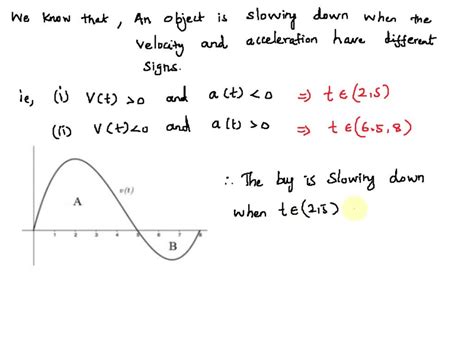 We know that, An object is slowing down when the
velocity and acceleration have different
signs.
ie, (i) V(t) > 0 and a(t) < 0 ⇒ t ∈ (2,5)
(ii) V(t) < 0 and a(t) > 0 ⇒ t ∈ (6.5, 8)
v(t)
A
1 2 3 4 5 6 7 8
B
∴ The buy is slowing down
when t ∈ (2,5)